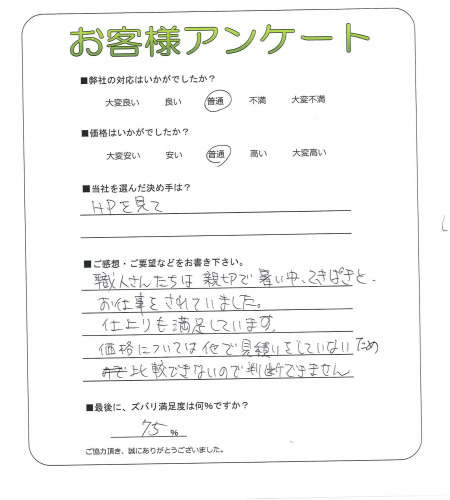 お客様アンケート
■弊社の対応はいかがでしたか?
大変良い 良い 普通 不満 大変不満
■価格はいかがでしたか?
大変安い 安い 普通 高い 大変高い
■当社を選んだ決め手は?
HPを見て
■ご感想・ご要望などをお書き下さい。
職人さんたちは 親切で 暑い中、てきぱきと、
お仕事をされていました。
仕上りも満足しています。
価格については他で見積りをしていないため
比較できないので判断できません
■最後に、ズバリ満足度は何%ですか?
75 %
ご協力頂き、誠にありがとうございました。